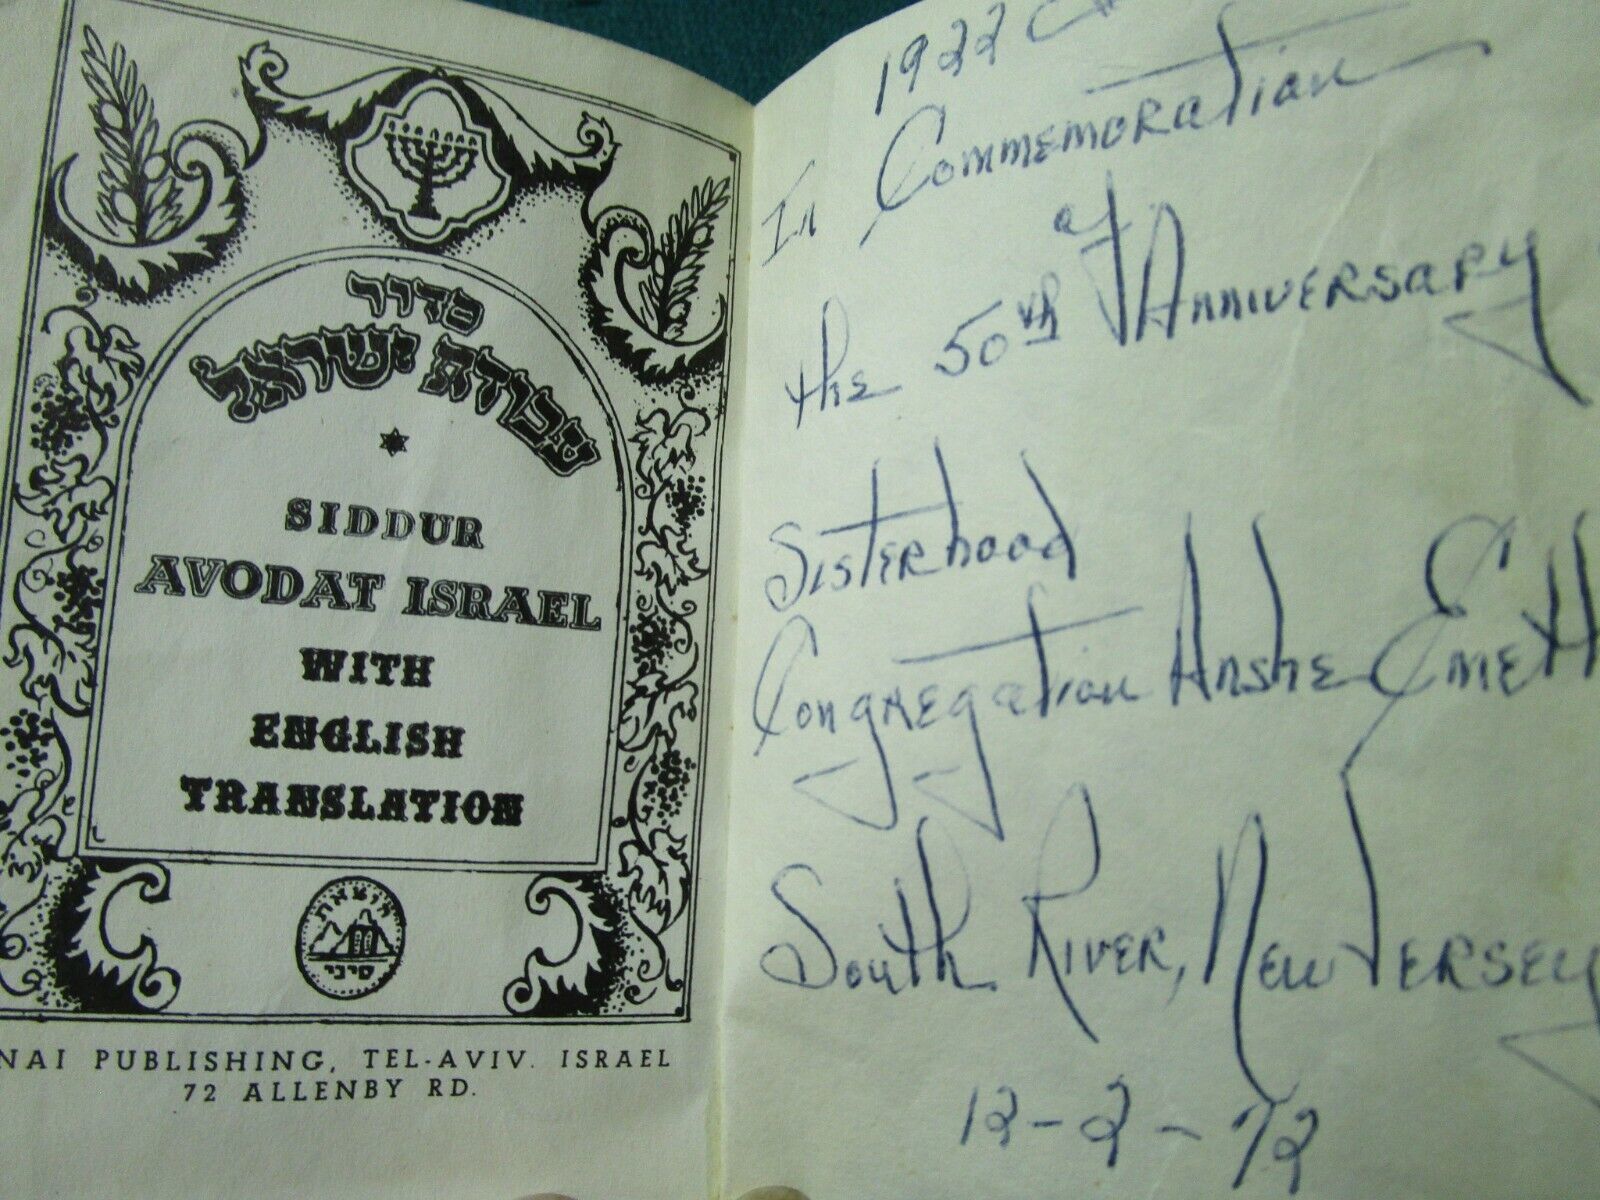 סדור
עבודת ישראל
SIDDUR
AVODAT ISRAEL
WITH
ENGLISH
TRANSLATION
הוצאת
סיני
NAI PUBLISHING, TEL-AVIV. ISRAEL
72 ALLENBY RD.
1922
In Commemoration
of
the 50th Anniversary
Sisterhood
Congregation Anshe Emeth
South River, New Jersey
12-2-72